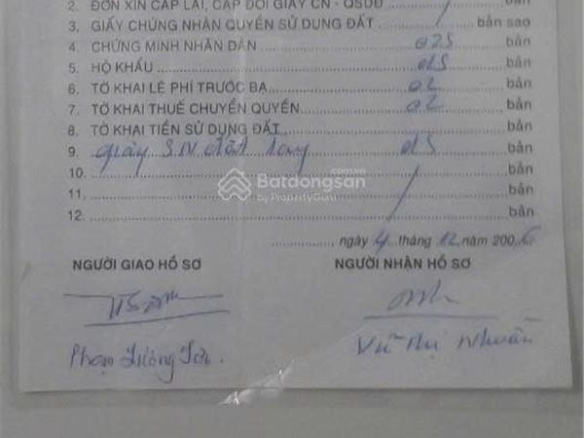 2. ĐƠN XIN CẤP LẠI, CẤP ĐỔI GIẤY CN - QSDĐ bản
3. GIẤY CHỨNG NHẬN QUYỀN SỬ DỤNG ĐẤT bản sao
4. CHỨNG MINH NHÂN DÂN 02S bản
5. HỘ KHẨU 01S bản
6. TỜ KHAI LỆ PHÍ TRƯỚC BẠ 02 bản
7. TỜ KHAI THUẾ CHUYỂN QUYỀN 02 bản
8. TỜ KHAI TIỀN SỬ DỤNG ĐẤT bản
9. bản
10. bản
Batdongsan.com.vn
by PropertyGuru
11. bản
12. bản
ngày 4 tháng 12 năm 2006
NGƯỜI GIAO HỒ SƠ NGƯỜI NHẬN HỒ SƠ
Phạm Vũ Thị Nhuần